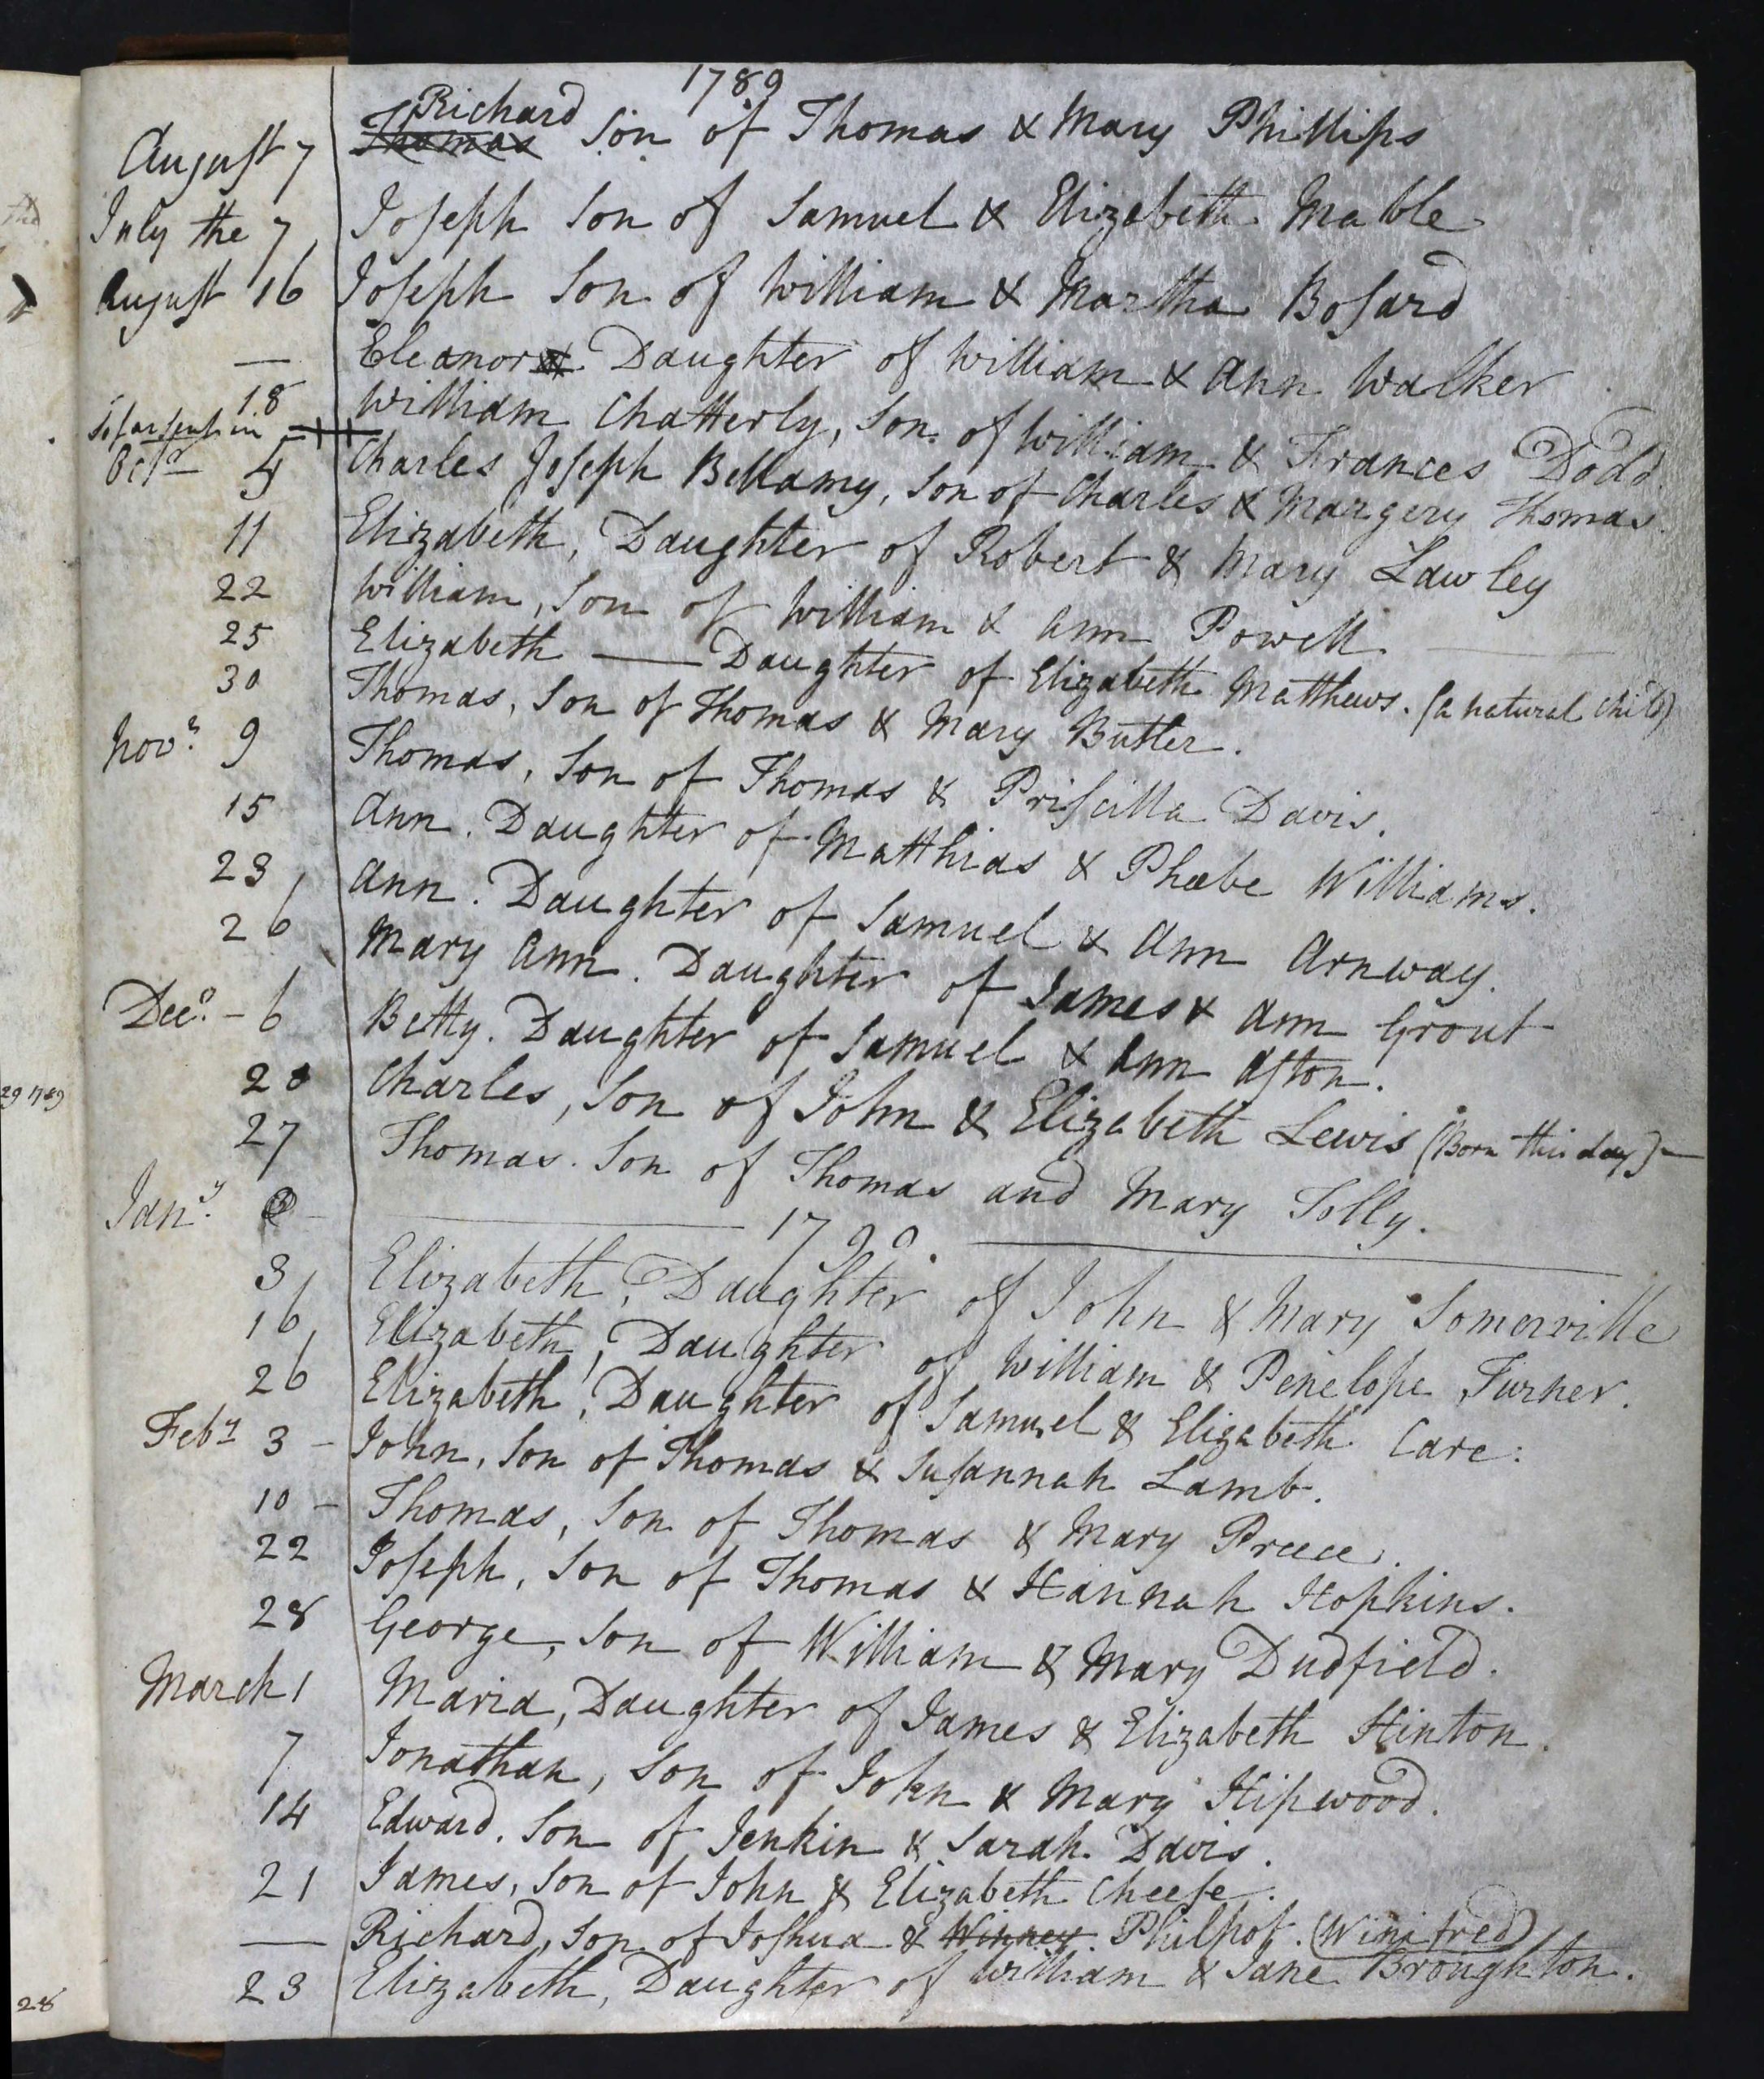 1789
August 7 Richard Thomas Son of Thomas & Mary Phillips
July the 7 Joseph Son of Samuel & Elizabeth Mable
August 16 Joseph Son of William & Martha Bosard
— Eleanor Daughter of William & Ann Walker
18 William Chatterly, Son of William & Frances Dodd
So far sent in
Octr 4 Charles Joseph Bellamy, Son of Charles & Margery Thomas.
11 Elizabeth, Daughter of Robert & Mary Lawley
22 William, Son of William & Ann Powell
25 Elizabeth — Daughter of Elizabeth Matthews. (a natural child)
30 Thomas, Son of Thomas & Mary Butler.
Novr. 9 Thomas, Son of Thomas & Priscilla Davis.
15 Ann. Daughter of Matthias & Phœbe Williams.
23 Ann. Daughter of Samuel & Ann Arnway.
26 Mary Ann. Daughter of James & Ann Grout
Decr. - 6 Betty. Daughter of Samuel & Ann Aston.
20 Charles, Son of John & Elizabeth Lewis (Born this day) —
27 Thomas. Son of Thomas and Mary Jolly.
Jany. — 1790. —
3 Elizabeth, Daughter of John & Mary Somerville
16 Elizabeth, Daughter of William & Penelope Turner.
26 Elizabeth, Daughter of Samuel & Elizabeth Care:
Feby 3 - John, Son of Thomas & Susannah Lamb.
10 - Thomas, Son of Thomas & Mary Preece.
22 Joseph, Son of Thomas & Hannah Hopkins.
28 George, Son of William & Mary Dudfield.
March 1 Maria, Daughter of James & Elizabeth Hinton.
7 Jonathan, Son of John & Mary Hipwood.
14 Edward. Son of Jenkin & Sarah Davis.
21 James, Son of John & Elizabeth Cheese.
— Richard, Son of Joshua & Winney Philpot. (Winifred)
23 Elizabeth, Daughter of William & Jane Broughton.
29 1789
28